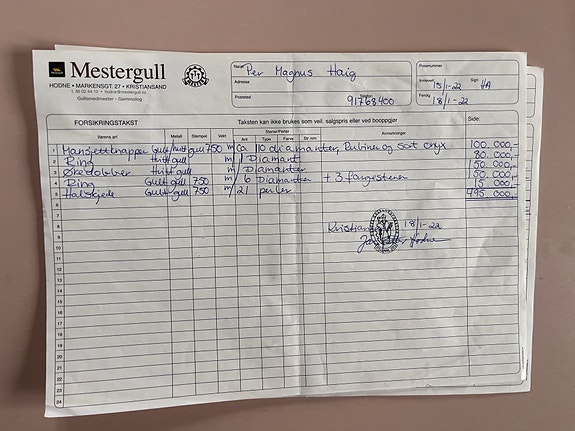 Mestergull
HODNE • MARKENSGT. 27 • KRISTIANSAND
t. 38 02 44 12 • hodne@mestergull.no
Gullsmedmester - Gemmolog
Navn Per Magnus Haig
Adresse
Poststed Telefon 91768400
Posenummer
Innlevert 15/1-22 Sign HA
Ferdig 18/1-22
FORSIKRINGSTAKST Taksten kan ikke brukes som veil. salgspris eller ved booppgjør Side:
Varens art Metall Stempel Vekt Stener/Perler Anmerkninger
Ant Type Farve Str mm
1 Mansjettknapper Gult/hvitt gull 750 m/ ca 110 diamanter, Rubiner og sort onyx 100.000,-
2 Ring Hvitt gull m/ 1 Diamant 80.000,-
3 Øredobber Hvitt gull m/ Diamanter 150.000,-
4 Ring Gult gull 750 m/ 6 Diamanter + 3 fargestener 150.000,-
5 Halskjede Gult gull 750 m/ 21 perler 15.000,-
6 495.000,-
7
8 Kristians 18/1-22
9 Hodne
10
11
12
13
14
15
16
17
18
19
20
21
22
23
24